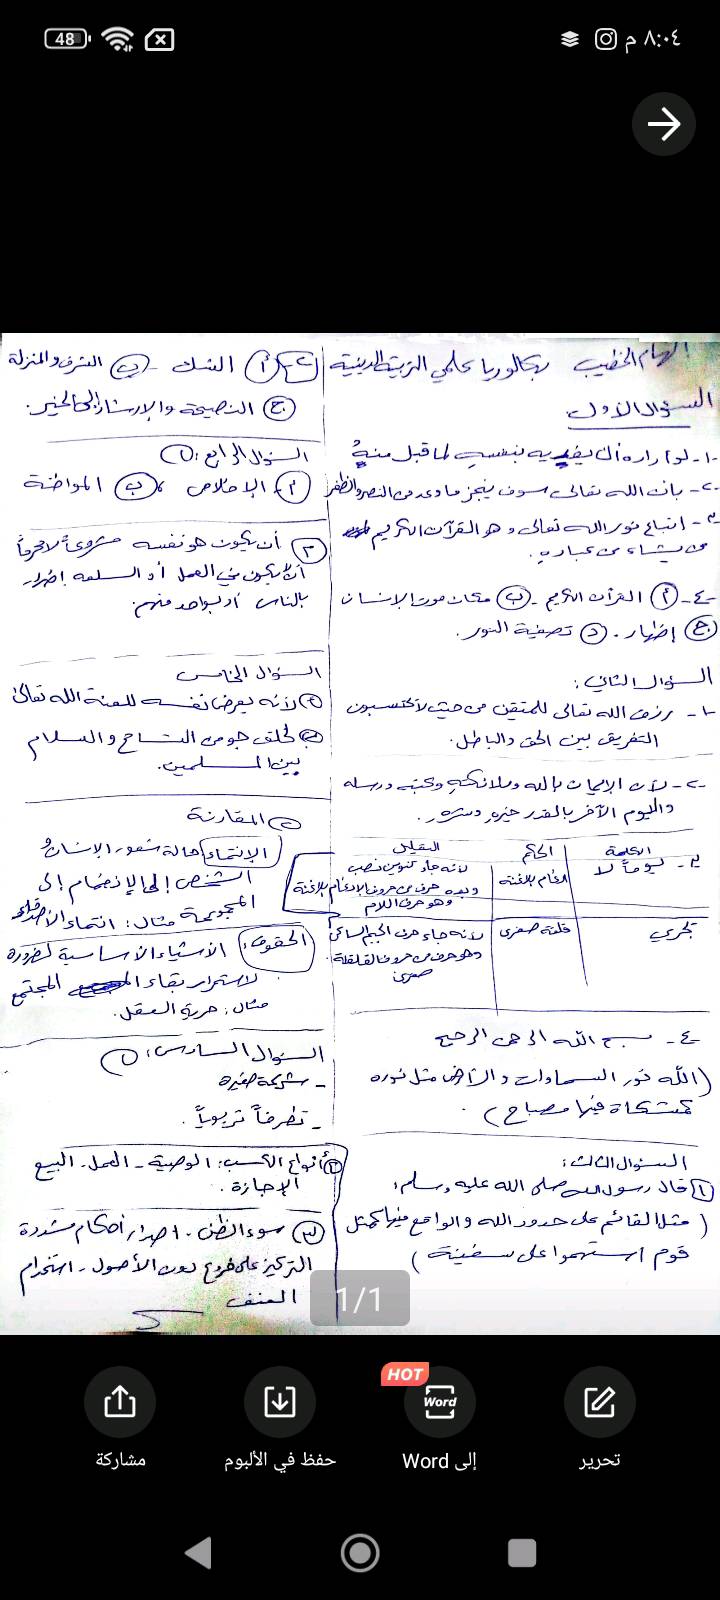 ٨:٠٤ م
48
إلهام الخطيب بكالوريا علمي التربية الدينية
السؤال الأول
١- لو أراد أن يفتديه بنفسه لما قبل منه
٢- بأن الله تعالى سوف ينجز ما وعد من النصر والظفر
٣- اتباع نور الله تعالى وهو القرآن الكريم
من يشاء من عباده.
٤- أ القرآن الكريم - ب مكان موت الإنسان
ج إظهار . د تصفية النور.
السؤال الثاني:
١- رزق الله تعالى للمتقين من حيث لا يحتسبون
التفريق بين الحق والباطل.
٢- لأن الإيمان بالله وملائكته وكتبه ورسله
واليوم الآخر بالقدر خيره وشره.
٣- الكلمة الحكم التعليل
يوماً لا إدغام بلا غنة لأنه جاء تنوين نصب
وبعده حرف من حروف الإدغام بلا غنة
وهو حرف اللام
تجري قلقلة صغرى لأنه جاء حرف الجيم الساكن
وهو حرف من حروف القلقلة
صغرى
٤- بسم الله الرحمن الرحيم
(الله نور السماوات والأرض مثل نوره
كمشكاة فيها مصباح).
السؤال الثالث:
١ قال رسول الله صلى الله عليه وسلم:
(مثل القائم على حدود الله والواقع فيها كمثل
قوم استهموا على سفينة)
٢- أ الشك - ب الشرف والمنزلة
ج النصيحة والإرشاد إلى الخير.
السؤال الرابع: ١
أ- الإخلاص ، ب المواطنة
٢ أن يكون هو نفسه مشروعاً لا محرماً
أن لا يكون في العمل أو السلعة إضرار
بالناس أو بواحد منهم.
السؤال الخامس
لأنه يعرض نفسه للعنة الله تعالى
لخلق جو من التسامح والسلام
بين المسلمين.
المقارنة
الانتماء: حالة شعور الإنسان
الشخص إلى الانضمام إلى
المجموعة مثال: انتماء
الحقوق: الأشياء الأساسية لضرورة
لاستمرار بقاء المجتمع
مثال: حرية العقل.
السؤال السادس: ١
- شريحة صغيرة
- تطرفاً تربوياً.
٢ أنواع الكسب: الوصية - العمل. البيع
الإجازة.
٣ سوء الظن. إصدار أحكام مشددة
التركيز على فروع دون الأصول - استخدام
العنف
1/1
HOT
Word
تحرير
إلى Word
حفظ في الألبوم
مشاركة